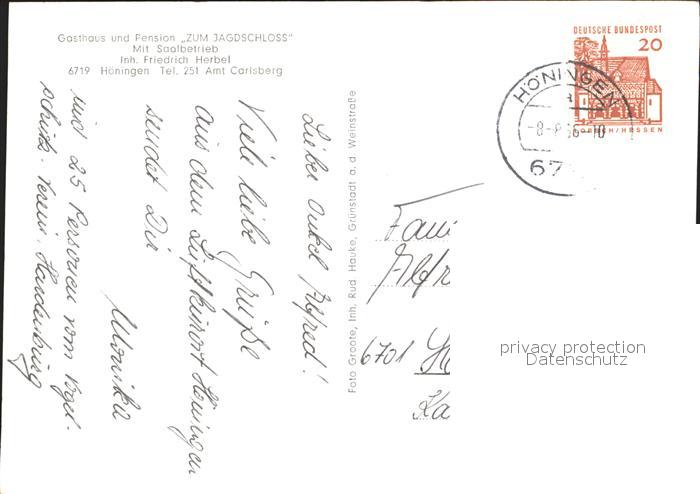 Gasthaus und Pension „ZUM JAGDSCHLOSS"
Mit Saalbetrieb
Inh. Friedrich Herbel
6719 Höningen Tel. 251 Amt Carlsberg
Lieber Onkel Alfred!
Viele liebe Grüße
aus dem Luftkurort Höningen
sendet Dir
Monika
und 25 Personen vom Vogel-
schutz-Verein. Hardenburg
Foto Groote, Inh. Rud Hauke, Grünstadt a. d. Weinstraße
DEUTSCHE BUNDESPOST
20
LORSCH/HESSEN
HÖNINGEN
a
-8-
-10
67
Fami
Alfr
6701
Ka
privacy protection
Datenschutz